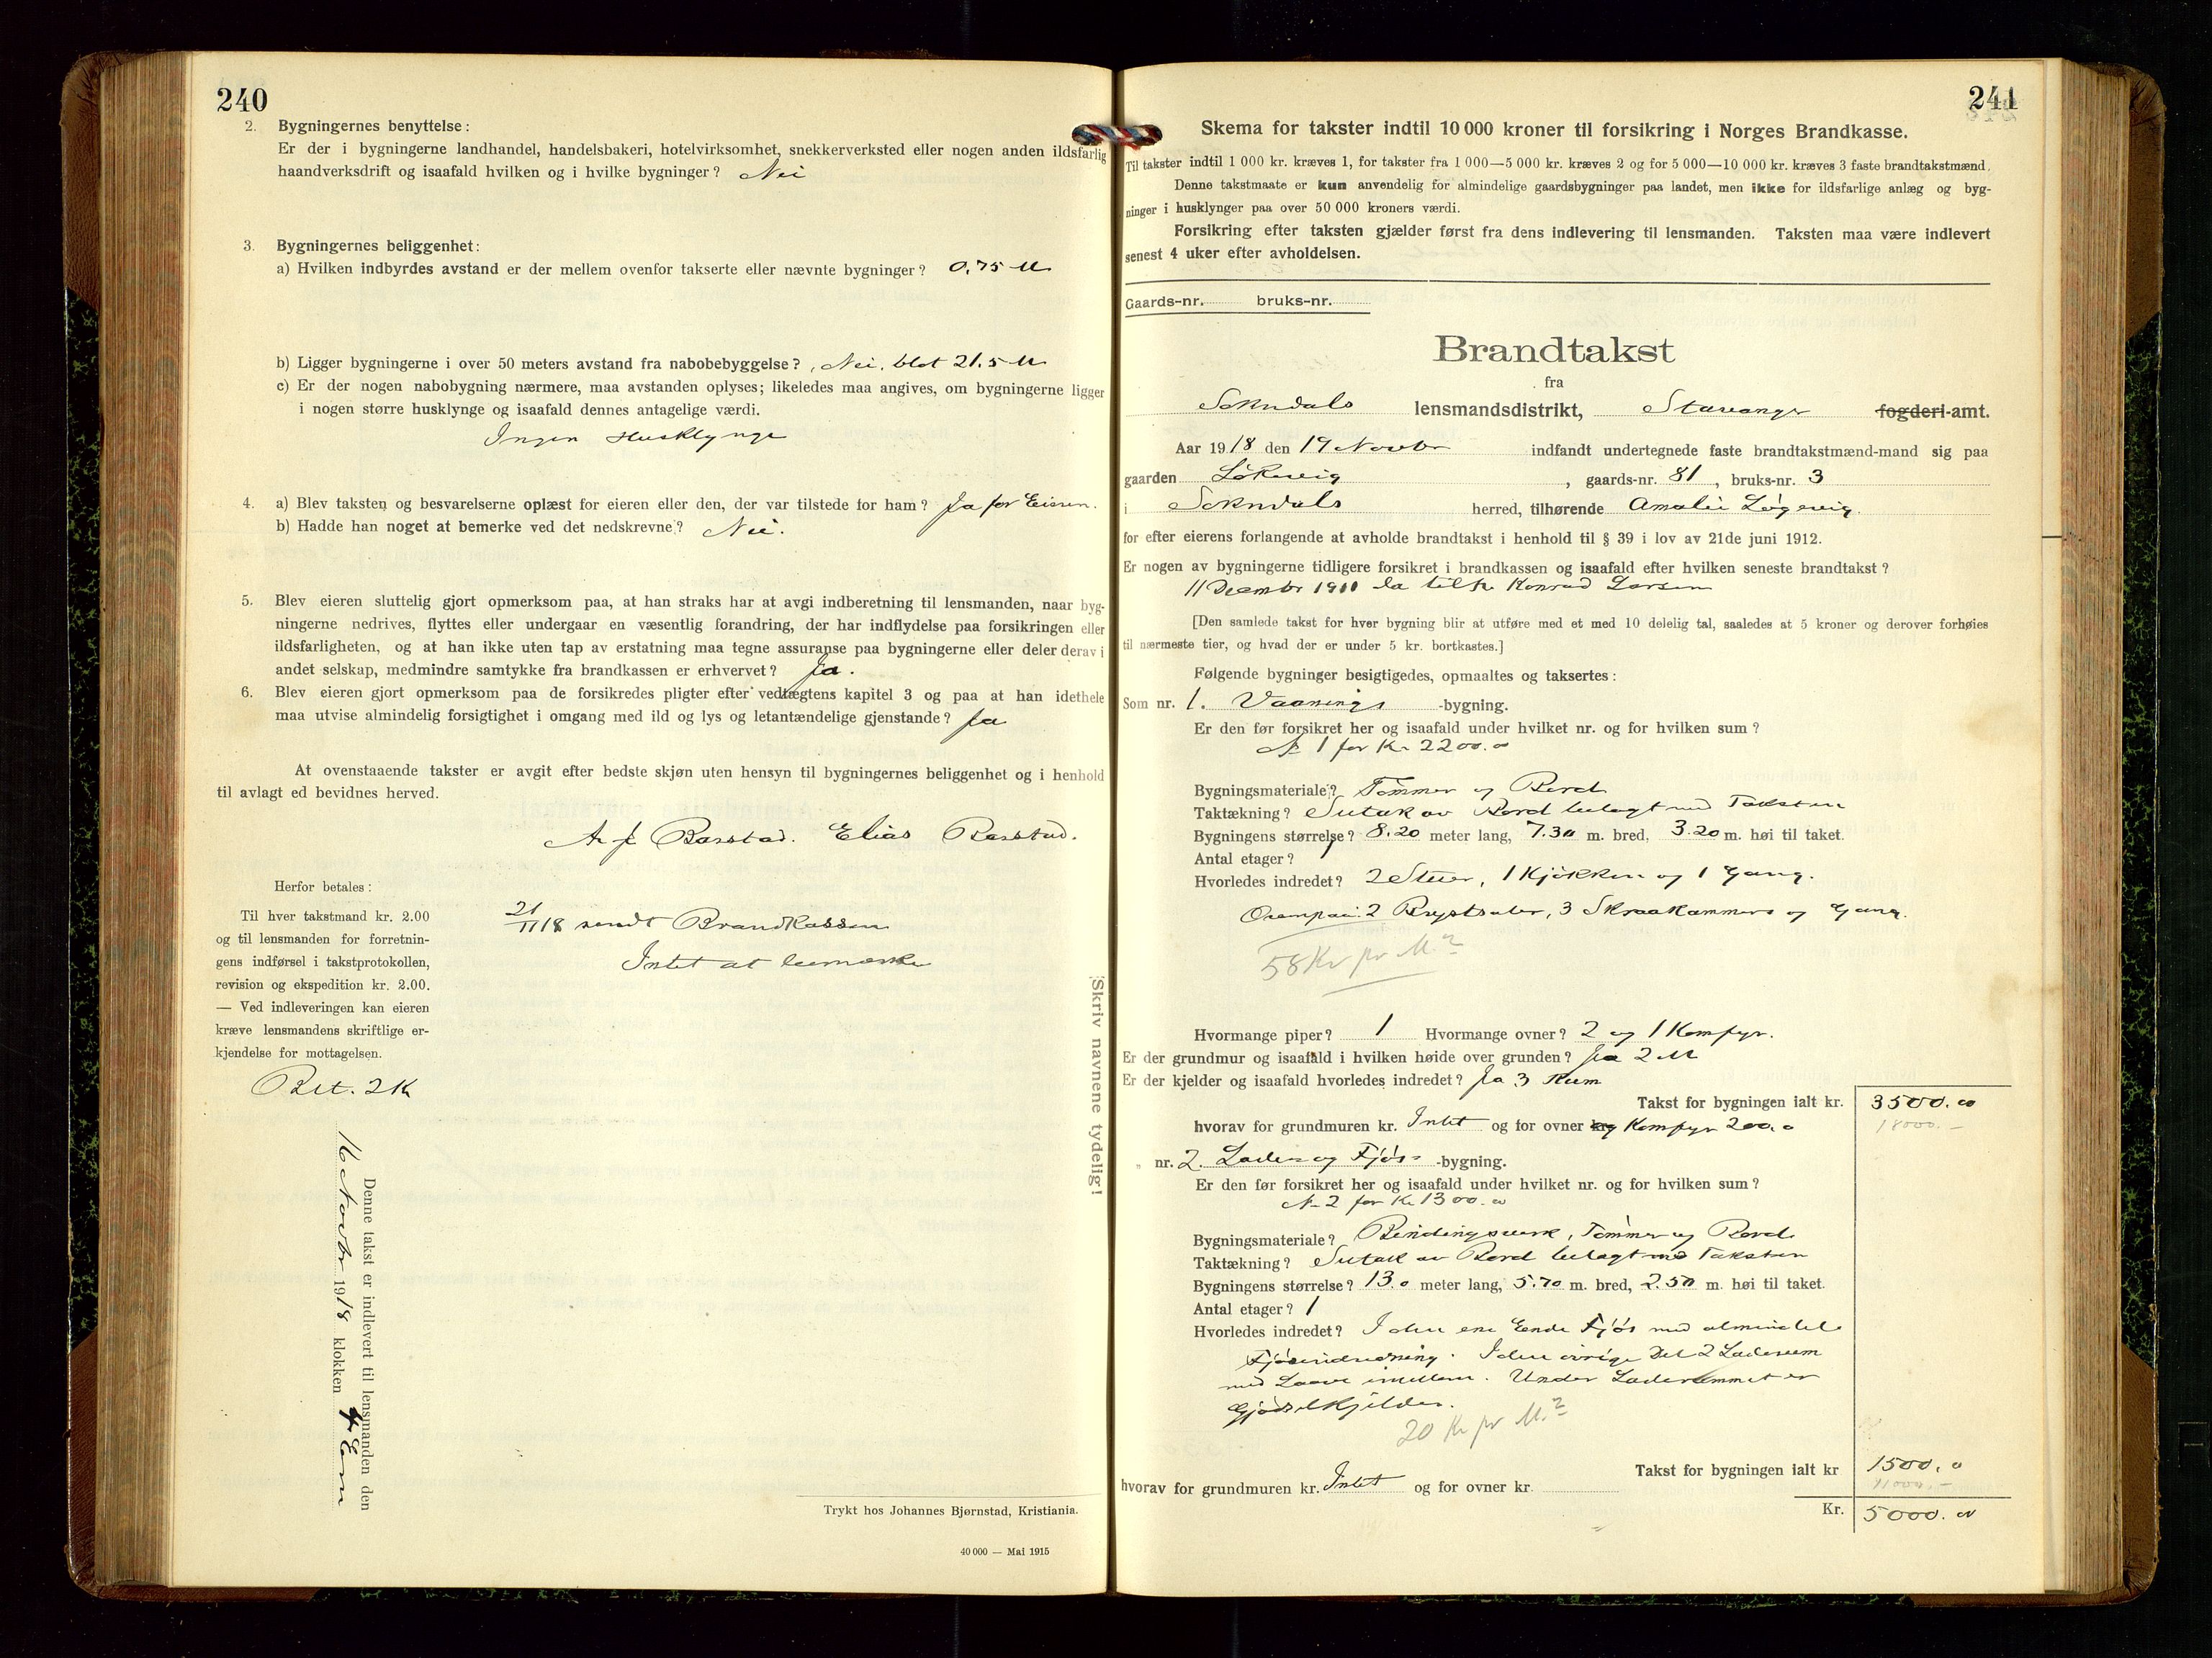 240
2. Bygningernes benyttelse:
Er der i bygningerne landhandel, handelsbakeri, hotelvirksomhet, snekkerverksted eller nogen anden ildsfarlig
haandverksdrift og isaafald hvilken og i hvilke bygninger? Nei
3. Bygningernes beliggenhet:
a) Hvilken indbyrdes avstand er der mellem ovenfor takserte eller nævnte bygninger? 0,75 M
b) Ligger bygningerne i over 50 meters avstand fra nabobebyggelse? Nei, blot 21.5 M
c) Er der nogen nabobygning nærmere, maa avstanden oplyses; likeledes maa angives, om bygningerne ligger
i nogen større husklynge og isaafald dennes antagelige værdi.
Ingen Husklynge
4. a) Blev taksten og besvarelserne oplæst for eieren eller den, der var tilstede for ham? Ja for Eieren.
b) Hadde han noget at bemerke ved det nedskrevne? Nei.
5. Blev eieren sluttelig gjort opmerksom paa, at han straks har at avgi indberetning til lensmanden, naar byg-
ningerne nedrives, flyttes eller undergaar en væsentlig forandring, der har indflydelse paa forsikringen eller
ildsfarligheten, og at han ikke uten tap av erstatning maa tegne assuranse paa bygningerne eller deler derav i
andet selskap, medmindre samtykke fra brandkassen er erhvervet? Ja.
6. Blev eieren gjort opmerksom paa de forsikredes pligter efter vedtægtens kapitel 3 og paa at han idethele
maa utvise almindelig forsigtighet i omgang med ild og lys og letantændelige gjenstande? Ja
At ovenstaaende takster er avgit efter bedste skjøn uten hensyn til bygningernes beliggenhet og i henhold
til avlagt ed bevidnes herved.
Elias
Herfor betales:
Til hver takstmand kr. 2.00
og til lensmanden for forretnin-
gens indførsel i takstprotokollen,
revision og ekspedition kr. 2.00.
— Ved indleveringen kan eieren
kræve lensmandens skriftlige er-
kjendelse for mottagelsen.
Bet. 2 K
21/11 18 sendt Brandkassen
Intet at bemærke
Skriv navnene tydelig!
Denne takst er indlevert til lensmanden den
Novbr 1918 klokken 4 Em
Trykt hos Johannes Bjørnstad, Kristiania.
40 000 — Mai 1915
241
Skema for takster indtil 10 000 kroner til forsikring i Norges Brandkasse.
Til takster indtil 1 000 kr. kræves 1, for takster fra 1 000—5 000 kr. kræves 2 og for 5 000—10 000 kr. kræves 3 faste brandtakstmænd.
Denne takstmaate er kun anvendelig for almindelige gaardsbygninger paa landet, men ikke for ildsfarlige anlæg og byg-
ninger i husklynger paa over 50 000 kroners værdi.
Forsikring efter taksten gjælder først fra dens indlevering til lensmanden. Taksten maa være indlevert
senest 4 uker efter avholdelsen.
Gaards-nr. bruks-nr.
Brandtakst
fra
Sokndals lensmandsdistrikt, Stavanger fogderi-amt.
Aar 1918 den 19 Novbr indfandt undertegnede faste brandtakstmænd-mand sig paa
gaarden Løkevig, gaards-nr. 81, bruks-nr. 3
i Sokndals herred, tilhørende Amalie Løgevig.
for efter eierens forlangende at avholde brandtakst i henhold til § 39 i lov av 21de juni 1912.
Er nogen av bygningerne tidligere forsikret i brandkassen og isaafald efter hvilken seneste brandtakst?
11 Decembr da tilh. Konrad Larsen
[Den samlede takst for hver bygning blir at utføre med et med 10 delelig tal, saaledes at 5 kroner og derover forhøies
til nærmeste tier, og hvad der er under 5 kr. bortkastes.]
Følgende bygninger besigtigedes, opmaaltes og taksertes:
Som nr. 1. Vaanings -bygning.
Er den før forsikret her og isaafald under hvilket nr. og for hvilken sum?
No 1 for Kr 2200.00
Bygningsmateriale? Tømmer og Bord
Taktækning? Sutak av Bord belagt med Taksten
Bygningens størrelse? 8.20 meter lang, 7.30 m. bred, 3.20 m. høi til taket.
Antal etager? 1
Hvorledes indredet? 2 Stuer, 1 Kjøkken og 1 Gang.
Ovenpaa: 2 Brystsuler, 3 Skraakammers og Gang.
58 Kr pr M.²
Hvormange piper? 1 Hvormange ovner? 2 og 1 Komfyr.
Er der grundmur og isaafald i hvilken høide over grunden? Ja 2 M
Er der kjelder og isaafald hvorledes indredet? Ja 3 Rum
Takst for bygningen ialt kr. 3500.00
18000.—
hvorav for grundmuren kr. Intet og for ovner kr. og Komfyr 200.0
„ nr. 2. Lade og Fjøs -bygning.
Er den før forsikret her og isaafald under hvilket nr. og for hvilken sum?
No 2 for Kr 1300.00
Bygningsmateriale? Bindingsverk, Tømmer og Bord
Taktækning? Sutak av Bord belagt med Taksten
Bygningens størrelse? 13.0 meter lang, 5.70 m. bred, 2.50 m. høi til taket.
Antal etager? 1
Hvorledes indredet? I den ene Ende Fjøs med almindel
Fjøsindredning. I den øvrige Del 2 Laderum
med Laave imellem. Under Laderummet er
Gjødselkjelder.
20 Kr pr M.²
Takst for bygningen ialt kr 1500.0
11000.—
hvorav for grundmuren kr. Intet og for ovner kr.
Kr. 5000.00